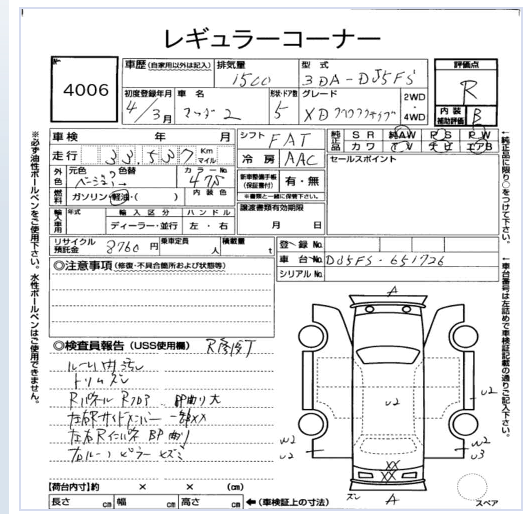 レギュラーコーナー
4006
車歴(自家用以外は記入) 排気量 1500 型式 3DA-DJ5FS 評価点 R
初度登録年月 4/3月 車名 マツダ2 形状・ドア数 5 グレード XD 2WD 4WD 内装補助評価 B
車検 年 月 シフト FAT 純正品 SR 純AW PS PW
カワ TV ナビ エアB
走行 33,537 Km マイル 冷房 AAC セールスポイント
外色 元色 ベージュ 色替 カラーNo. 47S 内装色
新車整備手帳(保証書付) 有・無
※書類と一緒に保管下さい。
燃料 ガソリン・軽油・( )
譲渡書類有効期限 月 日
輸入車 年式 輸入区分 ハンドル
ディーラー・並行 左・右
リサイクル預託金 8760円 乗車定員 人 積載量 t 登録No.
車台No. DJ5FS-651726
シリアルNo.
◎注意事項(修復・不具合箇所および状態等)
◎検査員報告(USS使用欄) R修復T
ルーム内汚レ
トリムズレ
Rパネル Rフロア BP曲り大
左右Rサイドメンバー 一部XX
左右Rインパネ BP曲り
右ルーフピラー キズミ
A
U2
W2
U2
U2
W2
U3
XX
XX
ズレ
A
スペア
【荷台内寸】約 × × (cm)
長さ cm 幅 cm 高さ cm ←(車検証上の寸法)
※必ず油性ボールペンをご使用下さい。水性ボールペンはご使用できません。
↑純正品に限り○をつけて下さい。
↑車台番号は左詰めで車検証記載の通りご記入下さい。